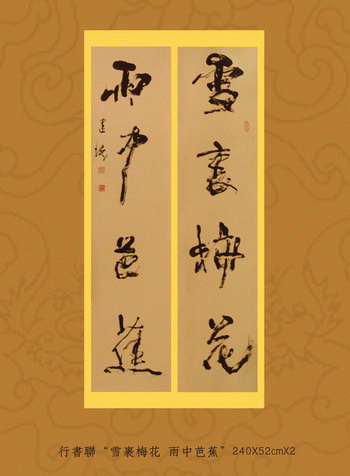 雪裏梅花
雨中芭蕉
行書聯“雪裏梅花 雨中芭蕉”240X52cmX2